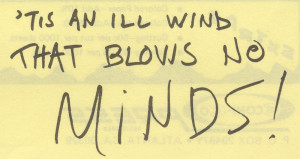 'TIS AN ILL WIND
THAT BLOWS NO
MINDS!